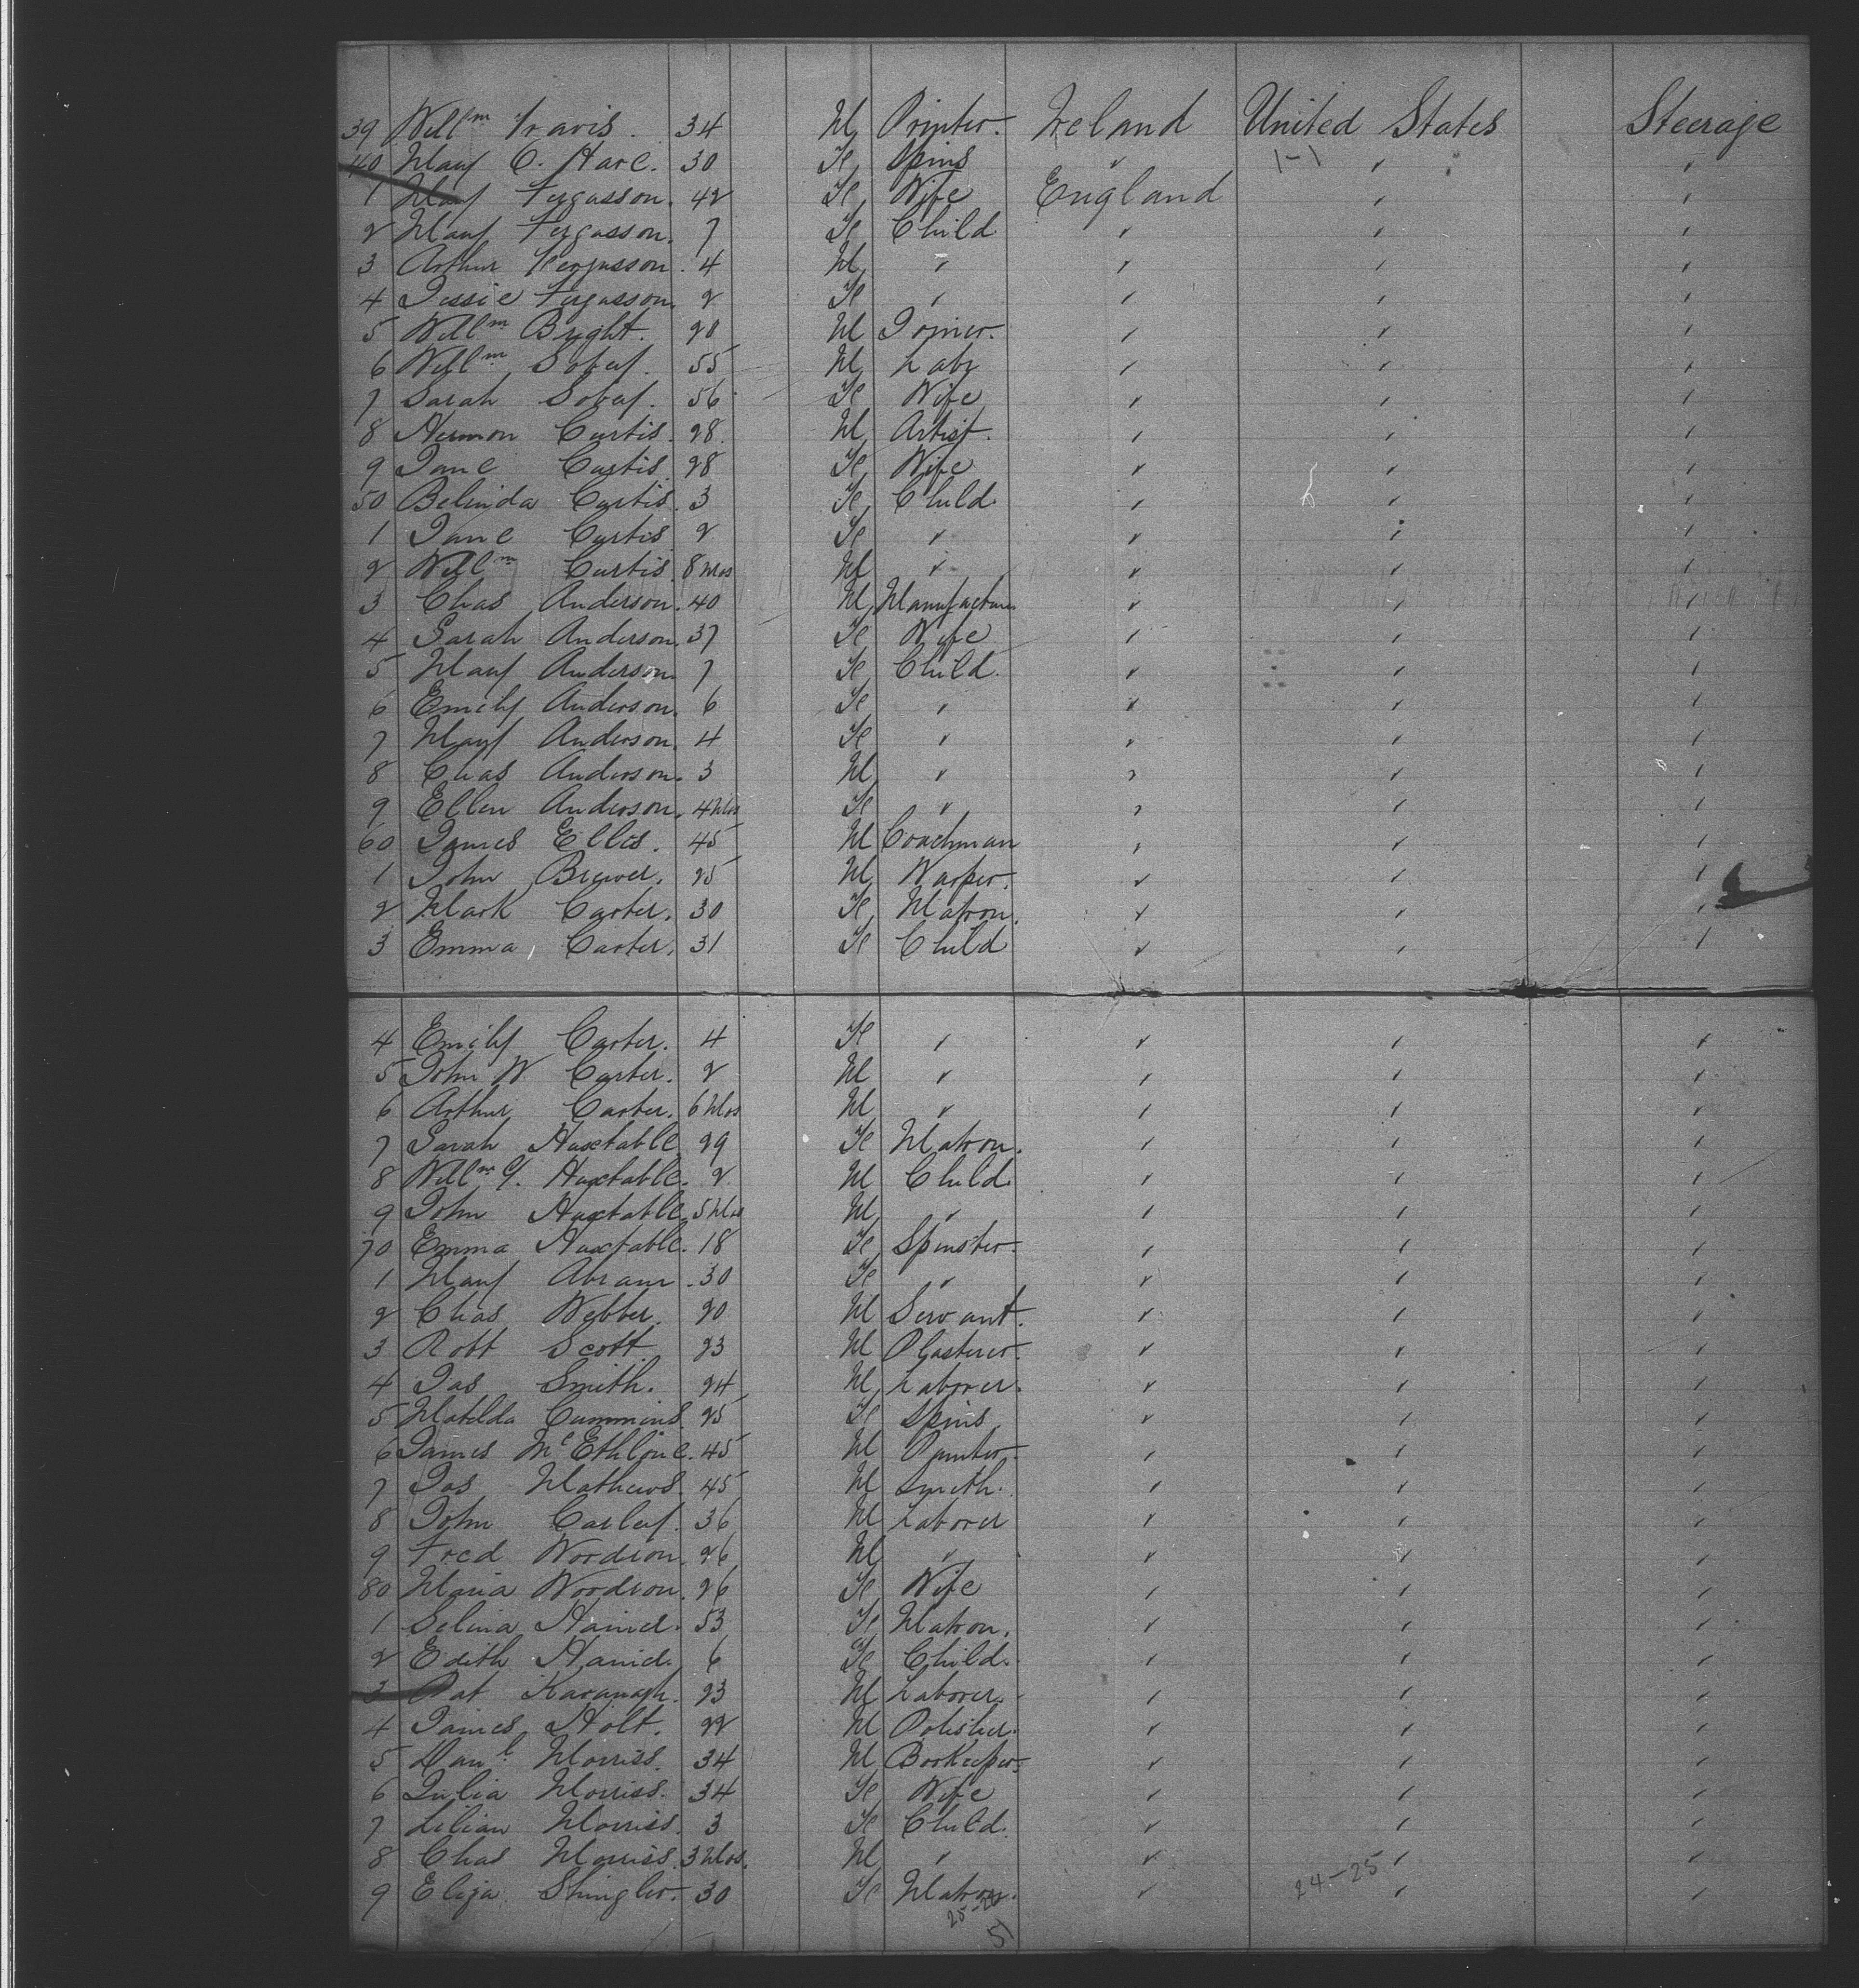 39 Will^m Travis. 34 M Printer. Ireland United States Steerage
40 Mary C. Hare. 30 Fe Spins " 1-1 " "
1 Mary Fergusson. 42 Fe Wife England " "
2 Mary Fergusson. 7 Fe Child " " "
3 Arthur Fergusson. 4 M " " " "
4 Jessie Fergusson. 2 Fe " " " "
5 Will^m Bright. 28 M Joiner. " " "
6 Will^m 55 M Labr " " "
7 Sarah 56 Fe Wife " " "
8 Hermon Curtis. 28. M Artist. " " "
9 Jane Curtis 28 Fe Wife " " "
50 Belinda Curtis. 3 Fe Child. " " "
1 Jane Curtis 2 Fe " " " "
2 Will^m Curtis. 8 Mos M " " " "
3 Chas Anderson. 40 M Manufacturer " " "
4 Sarah Anderson. 37 Fe Wife " " "
5 Mary Anderson. 7 Fe Child. " " "
6 Emily Anderson. 6 Fe " " " "
7 Mary Anderson. 4 Fe " " " "
8 Chas Anderson. 3 M " " " "
9 Ellen Anderson. 4 Mos Fe " " " "
60 James Elles. 45 M Coachman " " "
1 John Brewer. 25 M Warper. " " "
2 Mark Carter. 30 Fe Matron. " " "
3 Emma Carter. 31 Fe Child " " "
4 Emily Carter. 4 Fe " " " "
5 John W. Carter. 2 M " " " "
6 Arthur Carter. 6 Mos M " " " "
7 Sarah Huxtable 29 Fe Matron. " " "
8 Will^m G. Huxtable. 2 M Child. " " "
9 John Huxtable. 5 Mos M " " " "
70 Emma Huxtable. 18 Fe Spinster. " " "
1 Mary Abram. 30 Fe " " " "
2 Chas Webber. 20 M Servant. " " "
3 Robt Scott. 23 M Plasterer. " " "
4 Jas Smith. 24 M Laborer. " " "
5 Matilda Cummins. 25 Fe Spins " " "
6 James 45 M " " "
7 Jos Mathews. 45 M Smith. " " "
8 John Carley. 36 M Laborer " " "
9 Fred Woodson. 26 M " " " "
80 Maria Woodson. 26 Fe Wife " " "
1 Selina 53 Fe Matron. " " "
2 Edith 6 Fe Child. " " "
3 Pat Kavanagh. 23 M Laborer. " " "
4 James Holt. 22 M Polisher. " " "
5 Dan^l Morriss. 34 M Bookeeper. " " "
6 Julia Morriss. 34 Fe Wife " " "
7 Lilian Morriss. 3 Fe Child. " " "
8 Chas Morriss. 3 Mos. M " " " "
9 Eliza Shingler. 30 Fe Matron. " 24-25 " "